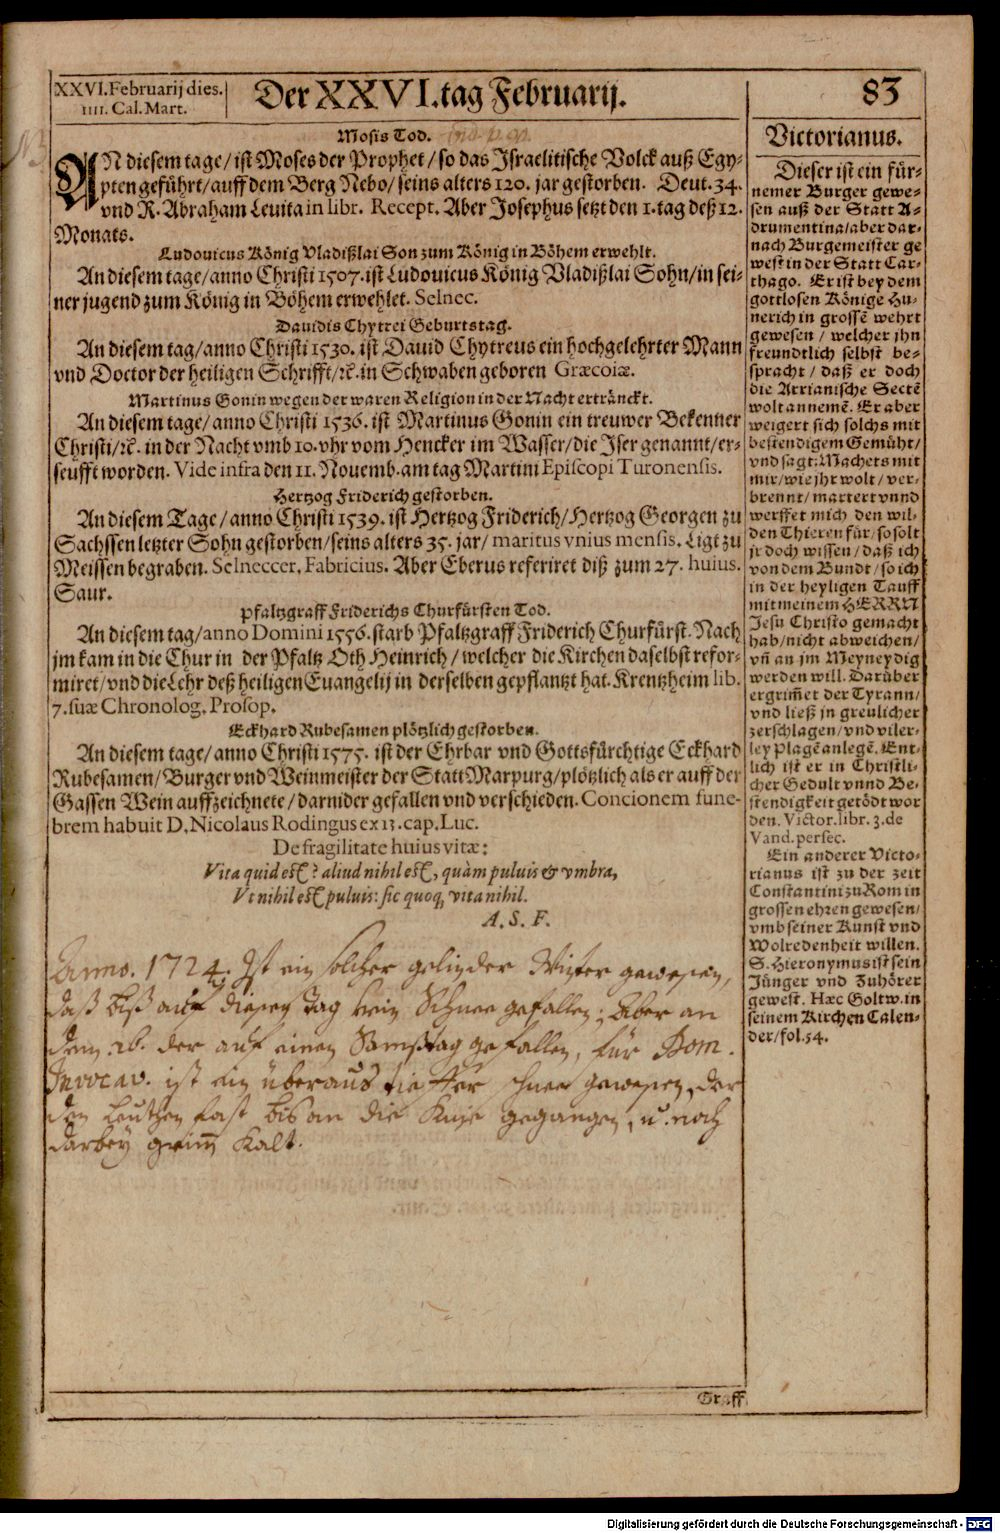 XXVI.Februarij dies.
IIII. Cal. Mart.
Der XXVI. tag Februarij.
83
Mosis Tod.
AN diesem tage / ist Moses der Prophet / so das Israelitische Volck auß Egy-
pten geführt / auff dem Berg Nebo / seins alters 120. jar gestorben. Deut. 34.
vnd R. Abraham Leuita in libr. Recept. Aber Josephus setzt den 1. tag deß 12.
Monats.
Ludouicus König Vladißlai Son zum König in Böhem erwehlt.
An diesem tage / anno Christi 1507. ist Ludouicus König Vladißlai Sohn / in sei-
ner jugend zum König in Böhem erwehlet. Selnec.
Dauidis Chytrei Geburtstag.
An diesem tag / anno Christi 1530. ist Dauid Chytreus ein hochgelehrter Mann
vnd Doctor der heiligen Schrifft / ꝛc. in Schwaben geboren Græcoiæ.
Martinus Gonin wegen der waren Religion in der Nacht ertränckt.
An diesem tage / anno Christi 1536. ist Martinus Gonin ein treuwer Bekenner
Christi / ꝛc. in der Nacht vmb 10. vhr vom Hencker im Wasser / die Iser genannt / er-
seufft worden. Vide infra den 11. Nouemb. am tag Martini Episcopi Turonensis.
Hertzog Friderich gestorben.
An diesem Tage / anno Christi 1539. ist Hertzog Friderich / Hertzog Georgen zu
Sachssen letzter Sohn gestorben / seins alters 35. jar / maritus vnius mensis. Ligt zu
Meissen begraben. Selneccer. Fabricius. Aber Eberus referiret diß zum 27. huius.
Saur.
Pfaltzgraff Friderichs Churfürsten Tod.
An diesem tag / anno Domini 1556. starb Pfaltzgraff Friderich Churfürst. Nach
jm kam in die Chur in der Pfaltz Oth Heinrich / welcher die Kirchen daselbst refor-
miret / vnd die Lehr deß heiligen Euangelij in derselben gepflantzt hat. Krentzheim lib.
7. suæ Chronolog. Prosop.
Eckhard Rubesamen plötzlich gestorben.
An diesem tage / anno Christi 1575. ist der Ehrbar vnd Gottsfürchtige Eckhard
Rubesamen / Burger vnd Weinmeister der Statt Marpurg / plötzlich als er auff der
Gassen Wein auffzeichnete / darnider gefallen vnd verschieden. Concionem fune-
brem habuit D. Nicolaus Rodingus ex 13. cap. Luc.
De fragilitate huius vitæ:
Vita quid est? aliud nihil est, quàm puluis & vmbra,
Vt nihil est puluis: sic quoq, vita nihil.
A. S. F.
Anno. 1724. Ist ein solcher gelinder Winter gewesen,
daß biß auf diesen Tag kein Schnee gefallen; Aber an
dem 26. der auf einen Samßtag gefallen, für Dom.
Invocav. ist ein überaus tieffer schnee gewesen, der
den Leuthen fast bis an die Knie gegangen, u. noch
darbey grim̄ kalt.
Graff
Victorianus.
Dieser ist ein für-
nemer Burger gewe-
sen auß der Statt A-
drumentina / aber dar-
nach Burgemeister ge
west in der Statt Car-
thago. Er ist bey dem
gottlosen Könige Hu-
nerich in grossē wehrt
gewesen / welcher jhn
freundtlich selbst be-
spracht / daß er doch
die Arrianische Sectē
wolt annemē. Er aber
weigert sich solchs mit
bestendigem Gemüht /
vnd sagt: Machets mit
mir / wie jhr wolt / ver-
brennt / martert vnnd
werffet mich den wil-
den Thieren für / so solt
jr doch wissen / daß ich
von dem Bundt / so ich
in der heyligen Tauff
mit meinem HERRN
Jesu Christo gemacht
hab / nicht abweichen /
vñ an jm Meyneydig
werden will. Darüber
ergrim̄et der Tyrann /
vnd ließ jn greulicher
zerschlagen / vnd viler-
ley Plagē anlegē. Ent-
lich ist er in Christli-
cher Gedult vnnd Be-
stendigkeit getödt wor
den. Victor. libr. 3. de
Vand. persec.
Ein anderer Victo-
rianus ist zu der zeit
Constantini zu Rom in
grossen ehren gewesen /
vmb seiner Kunst vnd
Wolredenheit willen.
S. Hieronymus ist sein
Jünger vnd Zuhörer
gewest. Hæc Goltw. in
seinem Kirchen Calen-
der / fol. 54.
Digitalisierung gefördert durch die Deutsche Forschungsgemeinschaft - DFG